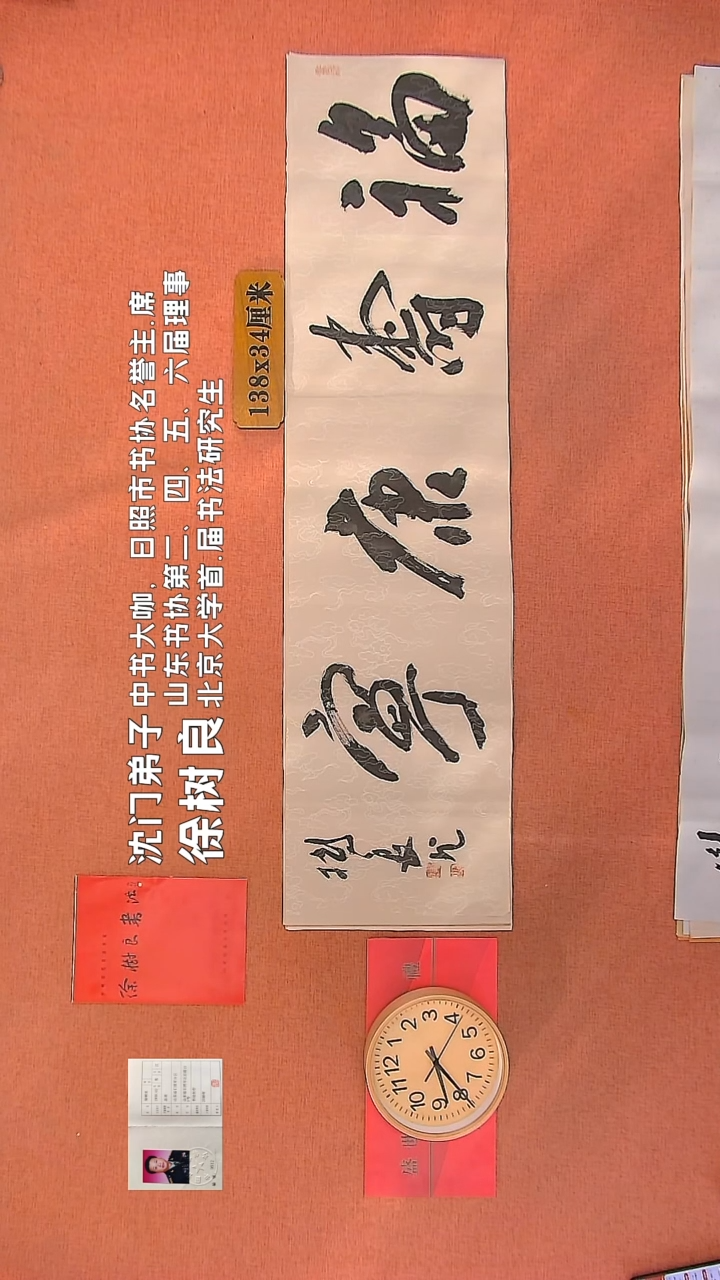 沈门弟子 中书大咖，日照市书协名誉主.席
徐树良 山东书协第三、四、五、六届理事
北京大学首.届书法研究生
138x34厘米
福壽康寧
樹良
徐樹良書法
12 1 2 3 4 5 6 7 8 9 10 11